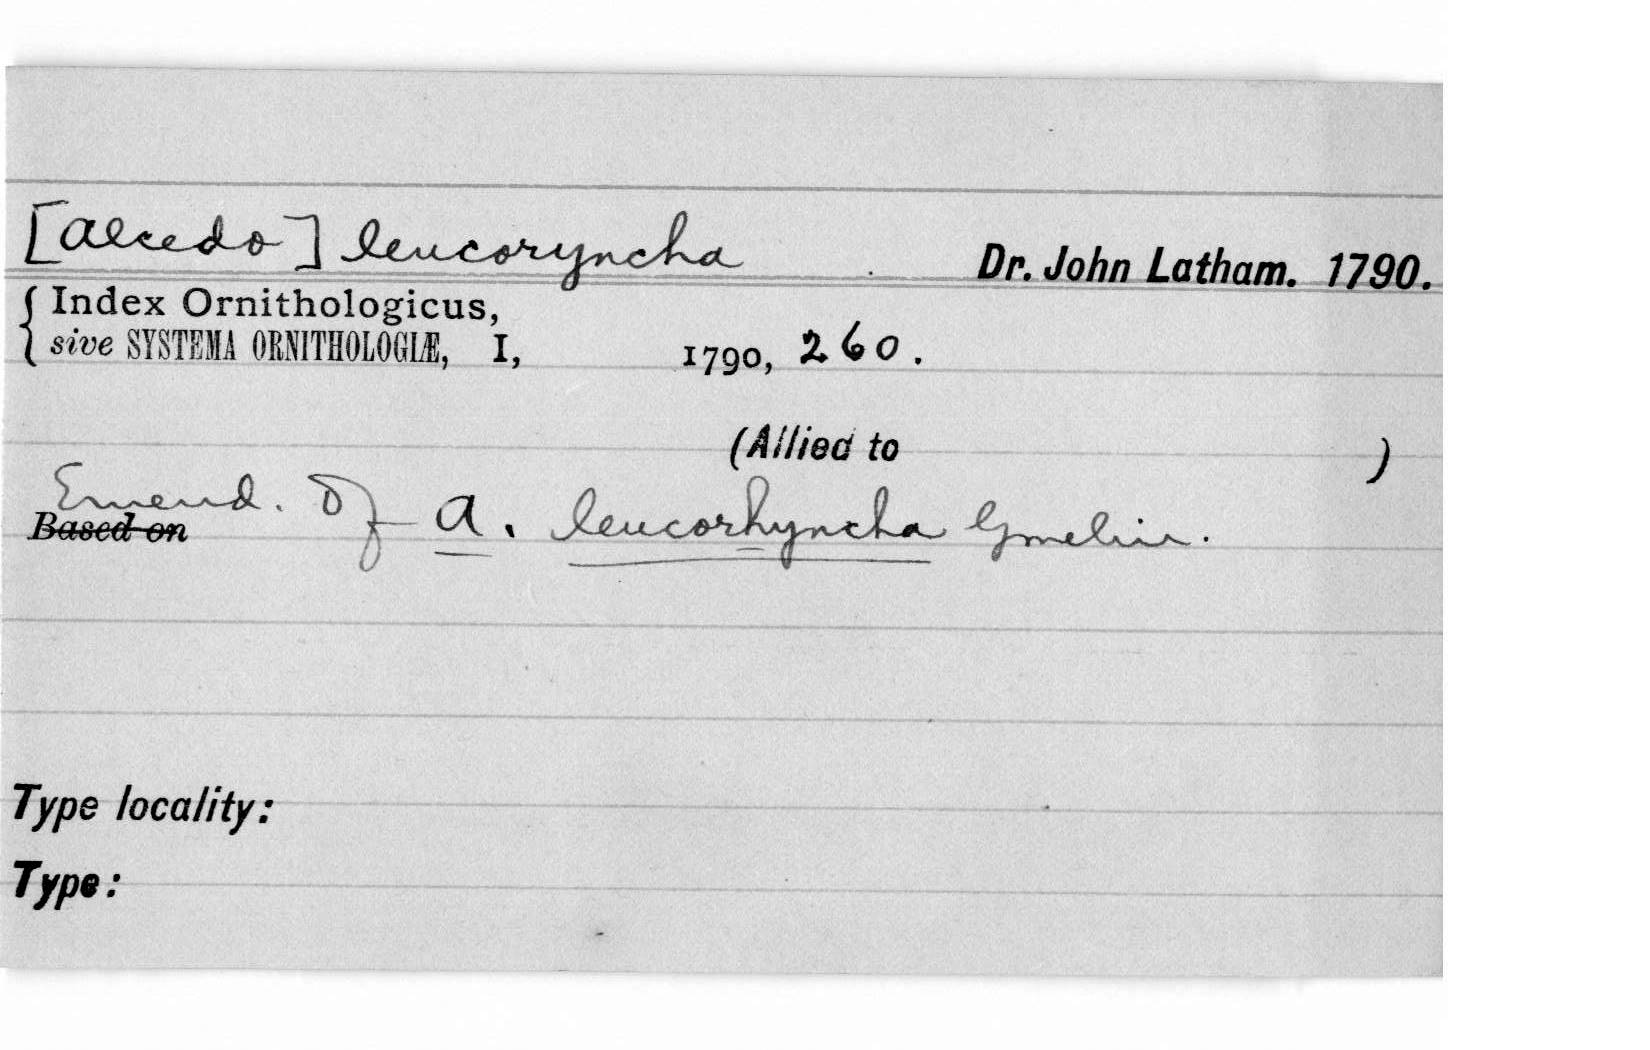 [Alcedo] leucoryncha Dr. John Latham. 1790.
Index Ornithologicus,
sive SYSTEMA ORNITHOLOGIÆ, I, 1790, 260.
(Allied to )
Emend. of A. leucorhyncha Gmelin.
Based on
Type locality:
Type: